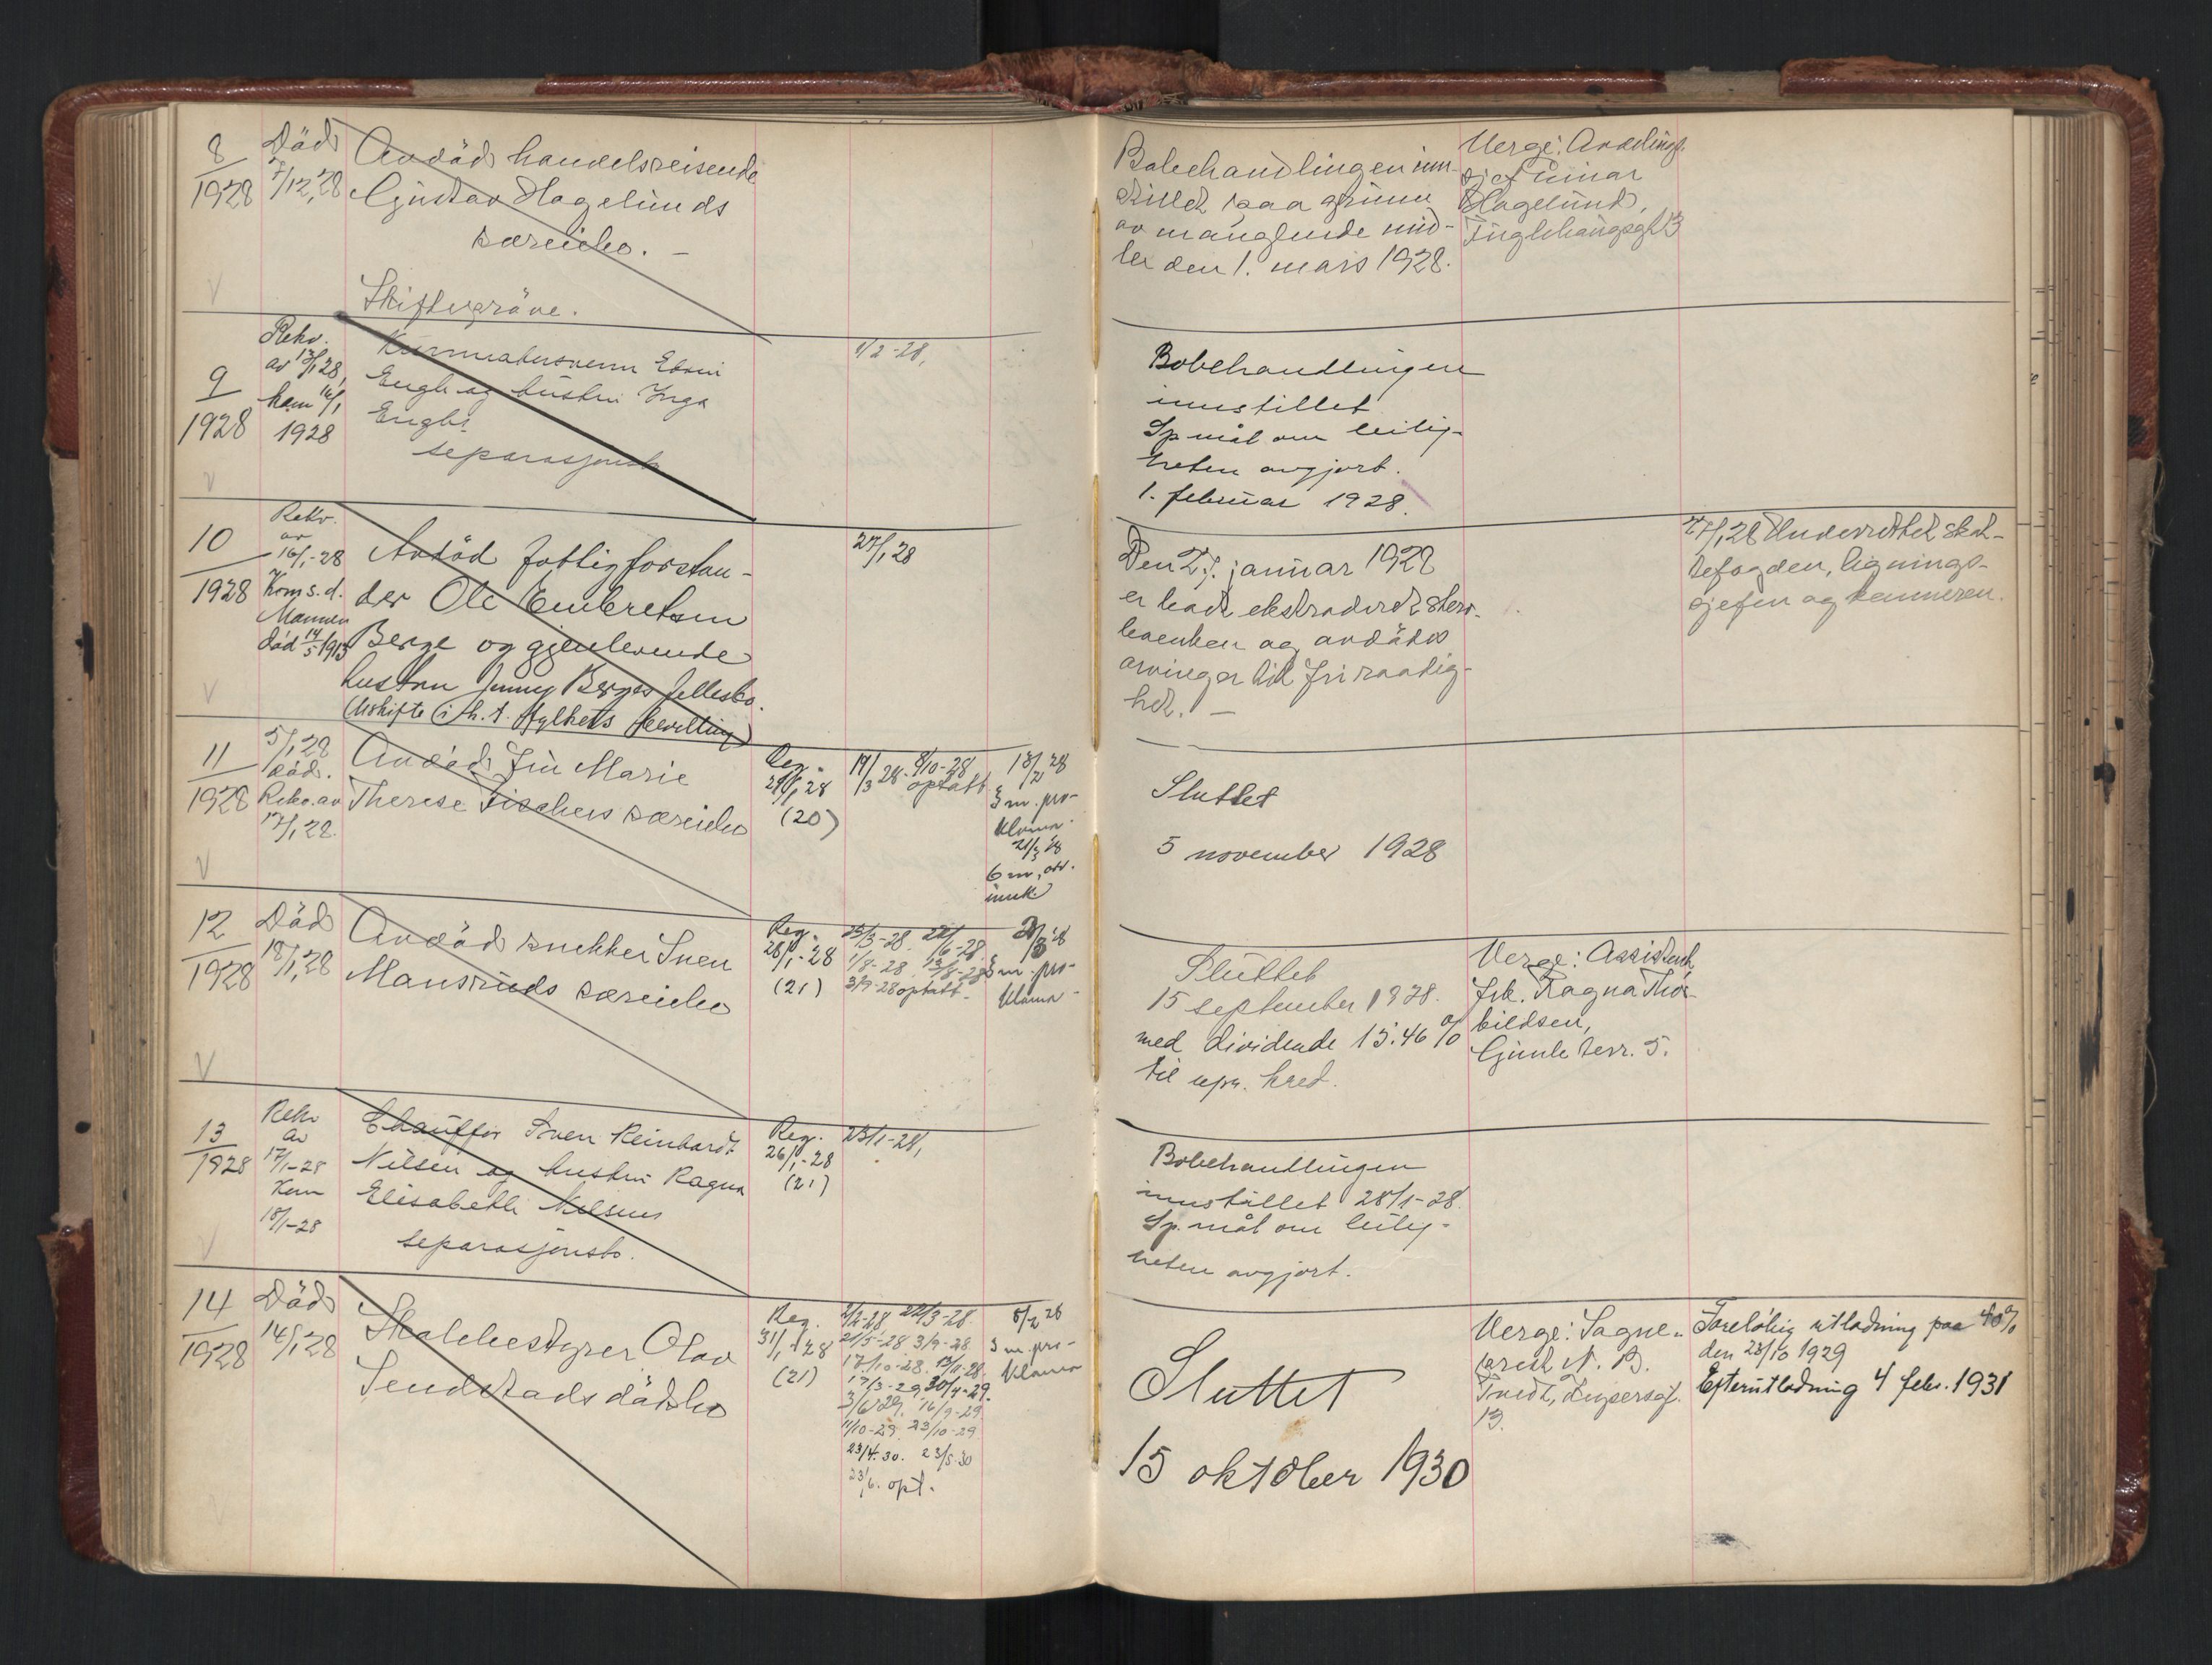 8
1928
Död
7/12,28
Avdöd handelsreisende
Gustav Hagelunds
særeiebo. –
Skifteprøve.
Bobehandlingen inn-
stillet paa grunn
av manglende mid-
ler den 1. mars 1928.
Verge: Avdelings-
sjef Einar
Hagelund,
9
1928
Rekv.
av 13/1 28,
kom 16/1
1928
Edvin
Engh og hustru Inga
Enghs
separasjonsb.
1/2-28,
Bobehandlingen
innstillet
Sp.mål om leilig-
heten avgjort.
1. februar 1928.
10
1928
Rekv.
av
16/1-28
Kom s.d.
Mannen
død 14/5 1913
Avdöd fattigforstan-
der Ole Embretsen
Berge og gjenlevende
hustru Jenny Berges fellesbo.
(Uskifte i h. t. fylkets bevilling)
27/1 28
Den 27. januar 1928
er boet ekstradert
enken og avdödes
arvinger til fri raadig-
het. –
27/1,28 Underrettet skat-
tefogden, lignings-
sjefen og kemneren.
11
1928
5/1,28
död.
Rekv. av
17/1,28.
Avdöd Fru Marie
Therese Fischers særeiebo
Reg.
21/1,28
(20)
19/3 28. 8/10-28
optatt
18/2 28
3 m. pro-
klama
21/3 28
6 m. arv.
innk.
Sluttet
5 november 1928
12
1928
Död
18/1,28
Avdöd snekker Sven
Mansruds særeiebo
Reg.
28/1-28
(21)
23/3-28. 22/6-28.
1/8-28. 13/8-28
3/9-28 optatt.
3 m. pro-
klama
Sluttet
15 september 1928.
med dividende 15.46 %
til upr. kred.
Verge: Assistent
frk. Ragna Thor-
bildsen,
Gimle terr. 5.
13
1928
Rekv
av
17/1-28
Kom
18/1-28
Chauffør Sven Reinhardt
Nilsen og hustru Ragna
Elisabeth Nilsens
separasjonsbo.
Reg.
26/1-28
(21)
23/1-28,
Bobehandlingen
innstillet 28/1-28.
Sp.mål om leilig-
heten avgjort.
14
1928
Död
14/1,28
Skolebestyrer Olav
Sendstads dödsbo
Reg.
31/1 28
(21)
2/2-28 22/3-28.
21/5-28 3/9-28
17/10-28. 13/11-28.
17/3-29, 30/4-29.
3/6 29. 16/9-29
11/10-29. 23/10-29
23/4.30. 23/5.30
23/6. opt.
8/2 28
3 m. pro-
klama
Sluttet
15 oktober 1930
Verge: Sogne-
prest N. B.
Tvedt,
13.
Foreløbig utlodning paa 40%
den 23/10 1929
Efterutlodning 4 febr. 1931